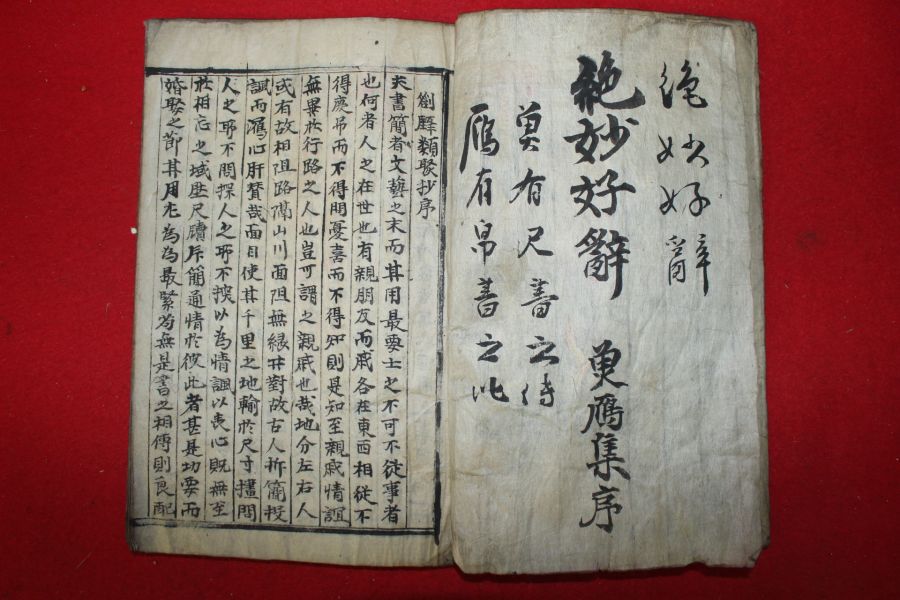 絶妙好辭
絶妙好辭 魚鴈集序
魚有尺書之待
鴈有帛書之此
劄辭類聚抄序
夫書簡者文藝之末而其用最要士之不可不從事者
也何者人之在世也有親朋友而戚各在東西相從不
得慶吊而不得問憂喜而不得知則是知至親戚情誼
無異於行路之人也豈可謂之親戚也哉地分左右人
或有故相阻路隔山川面阻無緣對故古人折簡投
諷而瀉心肝賛哉面目使其千里之地輸於尺寸問
人之所不問探人之所不探以為情諷以丧心既無至
於相忘之域尺牘斥簡通情於彼此者甚切要而
婚娶之節其用尤為為最緊苟無是書之相傳則良配